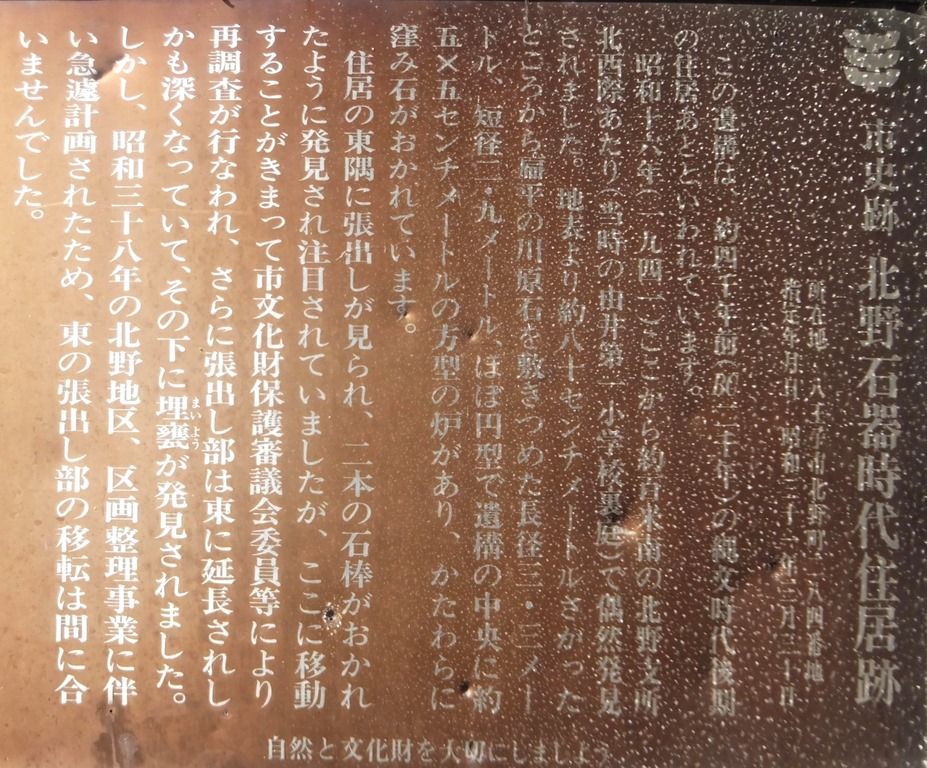 市史跡 北野石器時代住居跡
所在地 八王子市北野町一八四番地
指定年月日 昭和三十二年三月三十日
この遺構は、約四千年前(BC二千年)の縄文時代後期
の住居あとといわれています。
昭和十六年(一九四一)ここから約百米南の北野支所
北西隣あたり(当時の由井第一小学校裏庭)で偶然発見
されました。地表より約八十センチメートルさがった
ところから扁平の川原石を敷きつめた長径三・三メー
トル、短径二・九メートル、ほぼ円型で遺構の中央に約
五×五センチメートルの方型の炉があり、かたわらに
窪み石がおかれています。
住居の東隅に張出しが見られ、二本の石棒がおかれ
たように発見され注目されていましたが、ここに移動
することがきまって市文化財保護審議会委員等により
再調査が行なわれ、さらに張出し部は東に延長されし
かも深くなっていて、その下に埋甕が発見されました。
まいよう
しかし、昭和三十八年の北野地区、区画整理事業に伴
い急遽計画されたため、東の張出し部の移転は間に合
いませんでした。
自然と文化財を大切にしましょう